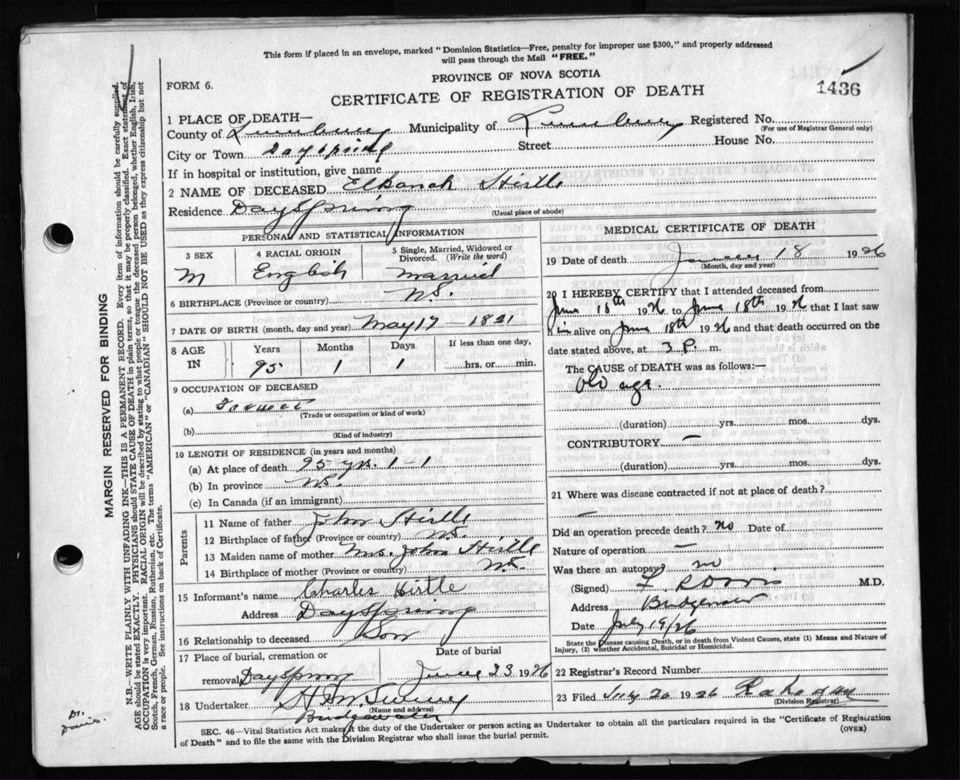 This form if placed in an envelope, marked "Dominion Statistics—Free, penalty for improper use $300," and properly addressed
will pass through the Mail "FREE."
PROVINCE OF NOVA SCOTIA
FORM 6.
CERTIFICATE OF REGISTRATION OF DEATH
1436
1 PLACE OF DEATH—
County of Lunenburg Municipality of Lunenburg Registered No.
(For use of Registrar General only)
City or Town Dayspring Street House No.
If in hospital or institution, give name
2 NAME OF DECEASED Elkanah Hirtle
Residence DaySpring
(Usual place of abode)
PERSONAL AND STATISTICAL INFORMATION
3 SEX 4 RACIAL ORIGIN 5 Single, Married, Widowed or Divorced. (Write the word)
M English Married
6 BIRTHPLACE (Province or country) N.S.
7 DATE OF BIRTH (month, day and year) May 17 1831
8 AGE IN Years Months Days If less than one day,
95 1 1 hrs. or min.
9 OCCUPATION OF DECEASED
(a) Farmer
(Trade or occupation or kind of work)
(b)
(Kind of industry)
10 LENGTH OF RESIDENCE (in years and months)
(a) At place of death 95 yrs. 1-1
(b) In province N.S.
(c) In Canada (if an immigrant)
Parents
11 Name of father John Hirtle
12 Birthplace of father (Province or country) N.S.
13 Maiden name of mother Mrs. John Hirtle
14 Birthplace of mother (Province or country) N.S.
15 Informant's name Charles Hirtle
Address DaySpring
16 Relationship to deceased Son
17 Place of burial, cremation or removal DaySpring Date of burial June 23 1926
18 Undertaker
(Name and address)
Bridgewater
MEDICAL CERTIFICATE OF DEATH
19 Date of death 18 1926
(Month, day and year)
20 I HEREBY CERTIFY that I attended deceased from
June 1926 to June 18th 1926 that I last saw
him alive on June 18th 1926 and that death occurred on the
date stated above, at 3 P. m.
The CAUSE OF DEATH was as follows:—
Old age.
(duration) yrs. mos. dys.
CONTRIBUTORY —
(duration) yrs. mos. dys.
21 Where was disease contracted if not at place of death?
—
Did an operation precede death? no Date of
Nature of operation —
Was there an autopsy? no
(Signed) M.D.
Address Bridgewater
Date July 19/26
State the Disease causing Death, or in death from Violent Causes, state (1) Means and Nature of
Injury, (2) whether Accidental, Suicidal or Homicidal.
22 Registrar's Record Number
23 Filed July 20 1926
(Division Registrar)
SEC. 46—Vital Statistics Act makes it the duty of the Undertaker or person acting as Undertaker to obtain all the particulars required in the "Certificate of Registration
of Death" and to file the same with the Division Registrar who shall issue the burial permit.
(OVER)
MARGIN RESERVED FOR BINDING
N.B.—WRITE PLAINLY WITH UNFADING INK—THIS IS A PERMANENT RECORD. Every item of information should be carefully supplied.
AGE should be stated EXACTLY. PHYSICIANS should STATE CAUSE OF DEATH in plain terms, so that it may be properly classified. Exact statement of
OCCUPATION is very important. RACIAL ORIGIN will be described by stating to what people or tongue the deceased person belonged, whether English, Irish,
Scotch, French, German, Russian, Ruthenian, etc. The terms "AMERICAN" or "CANADIAN" SHOULD NOT BE USED as they express citizenship but not
a race or people. See instructions on back of Certificate.
Dr.
Davis.